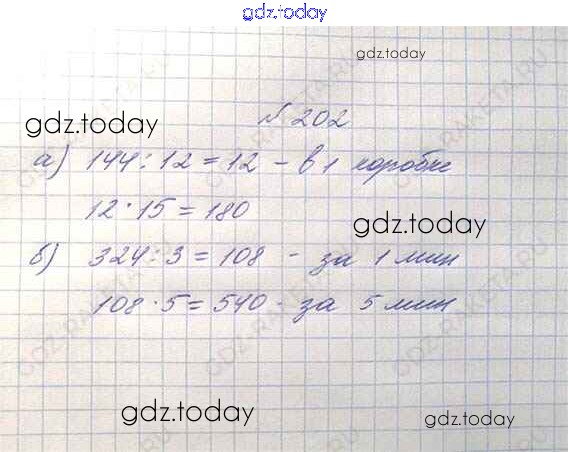 gdz.today
gdz.today
№ 202
gdz.today
а) 144 : 12 = 12 - в 1 коробке
12 · 15 = 180
gdz.today
б) 324 : 3 = 108 - за 1 мин
108 · 5 = 540 - за 5 мин
gdz.today
gdz.today